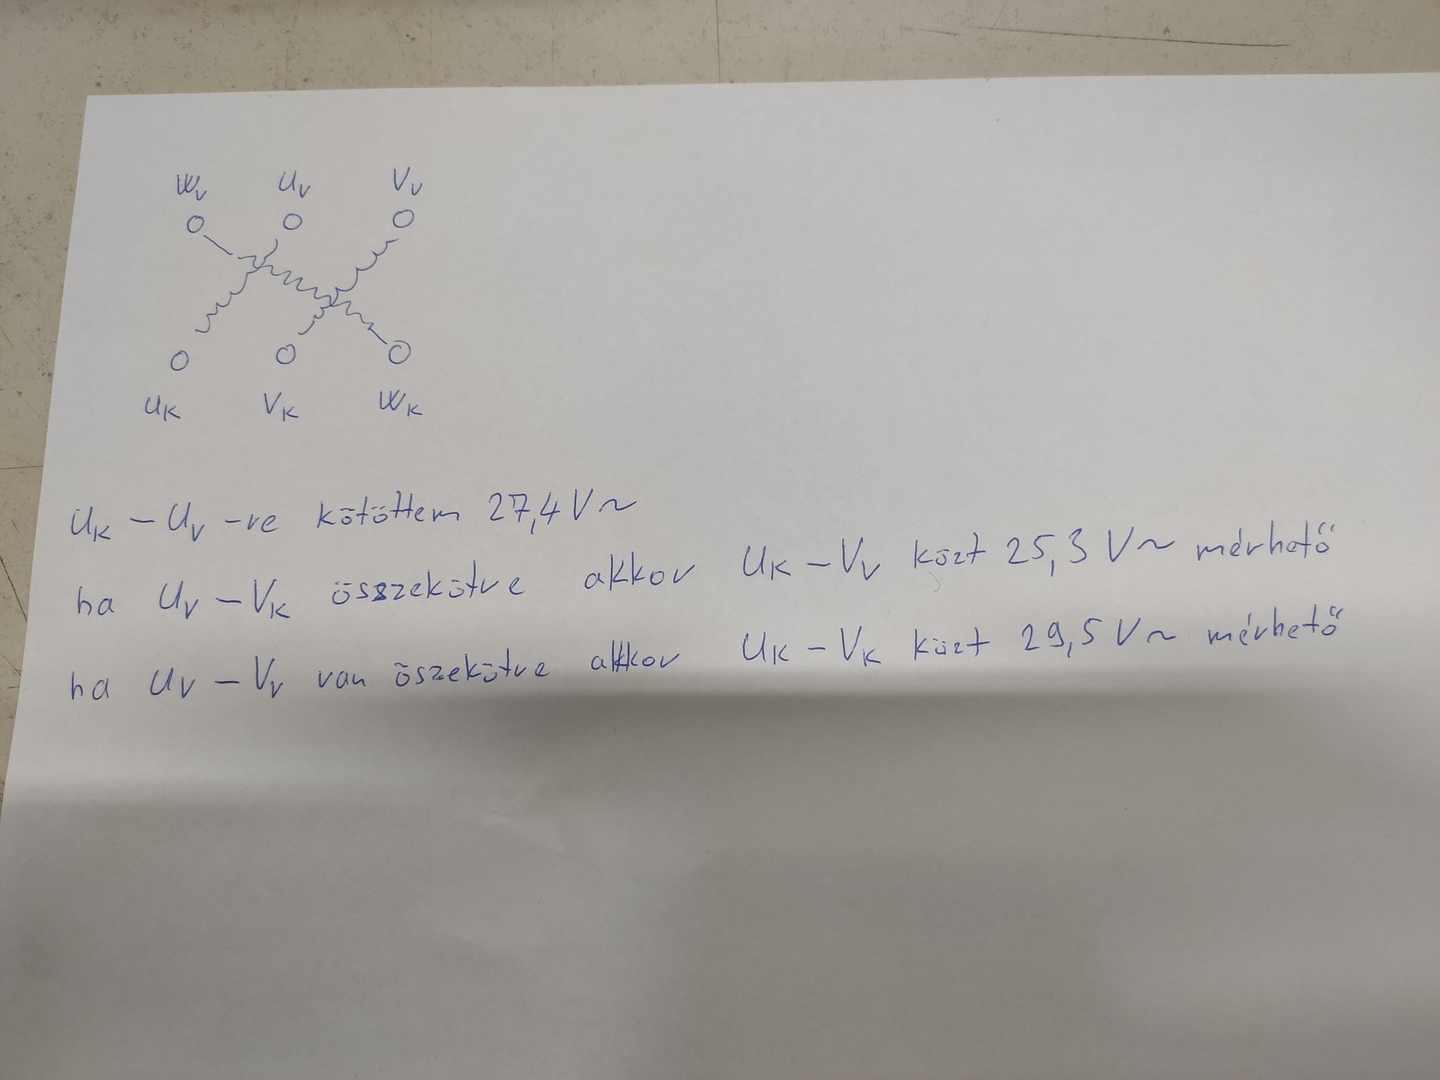 Wv Uv Vv
UK VK WK
UK – Uv -re kötöttem 27,4 V~
ha Uv – VK összekötve akkor UK – Vv közt 25,3 V~ mérhető
ha Uv – Vv van öszekötve akkor UK – VK közt 29,5 V~ mérhető